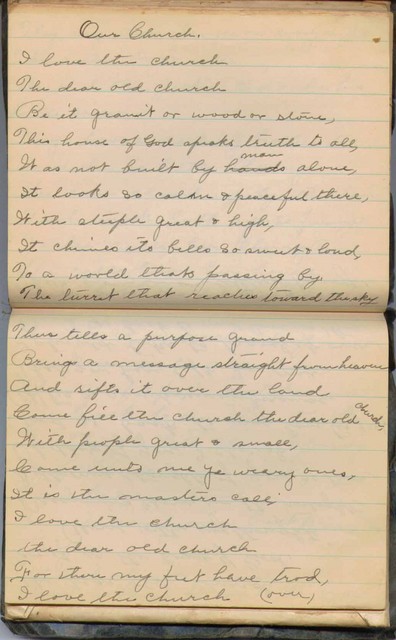 Our Church.
I love the church
The dear old church
Be it granit or wood or stone,
This house of God speaks truth to all,
It as not built by hands man alone,
It looks so calm & peaceful there,
With steple great & high,
It chimes its bells so sweet & loud,
To a world thats passing by
The turret that reaches toward the sky
Thus tells a purpose grand
Brings a message straight from heaven
And sifts it over the land
Come fill the church the dear old church,
With people great & small,
Come unto me ye weary ones,
It is the masters call,
I love the church
the dear old church
For there my feet have trod,
I love the church (over)